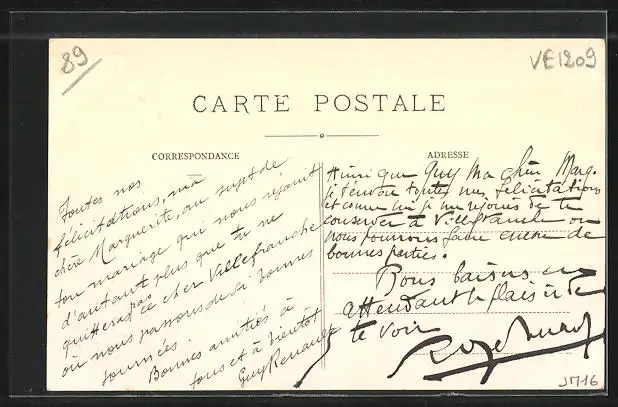 89
VE1209
CARTE POSTALE
CORRESPONDANCE
ADRESSE
Toutes nos
félicitations, ma
chère Marguerite, au sujet de
ton mariage qui nous réjouit
d'autant plus que tu ne
quitteras pas ce cher Villefranche
où nous passons de si bonnes
journées.
Bonnes amitiés à
tous et à bientôt
Guy Renaud
Ainsi que Guy Ma chère Marg.
je t'envoie toutes mes félicitations
et comme lui je me réjouis de te
conserver à Villefranche où
nous pourrons faire encore de
bonnes parties.
Bons baisers en
attendant le plaisir de
te voir
JM16